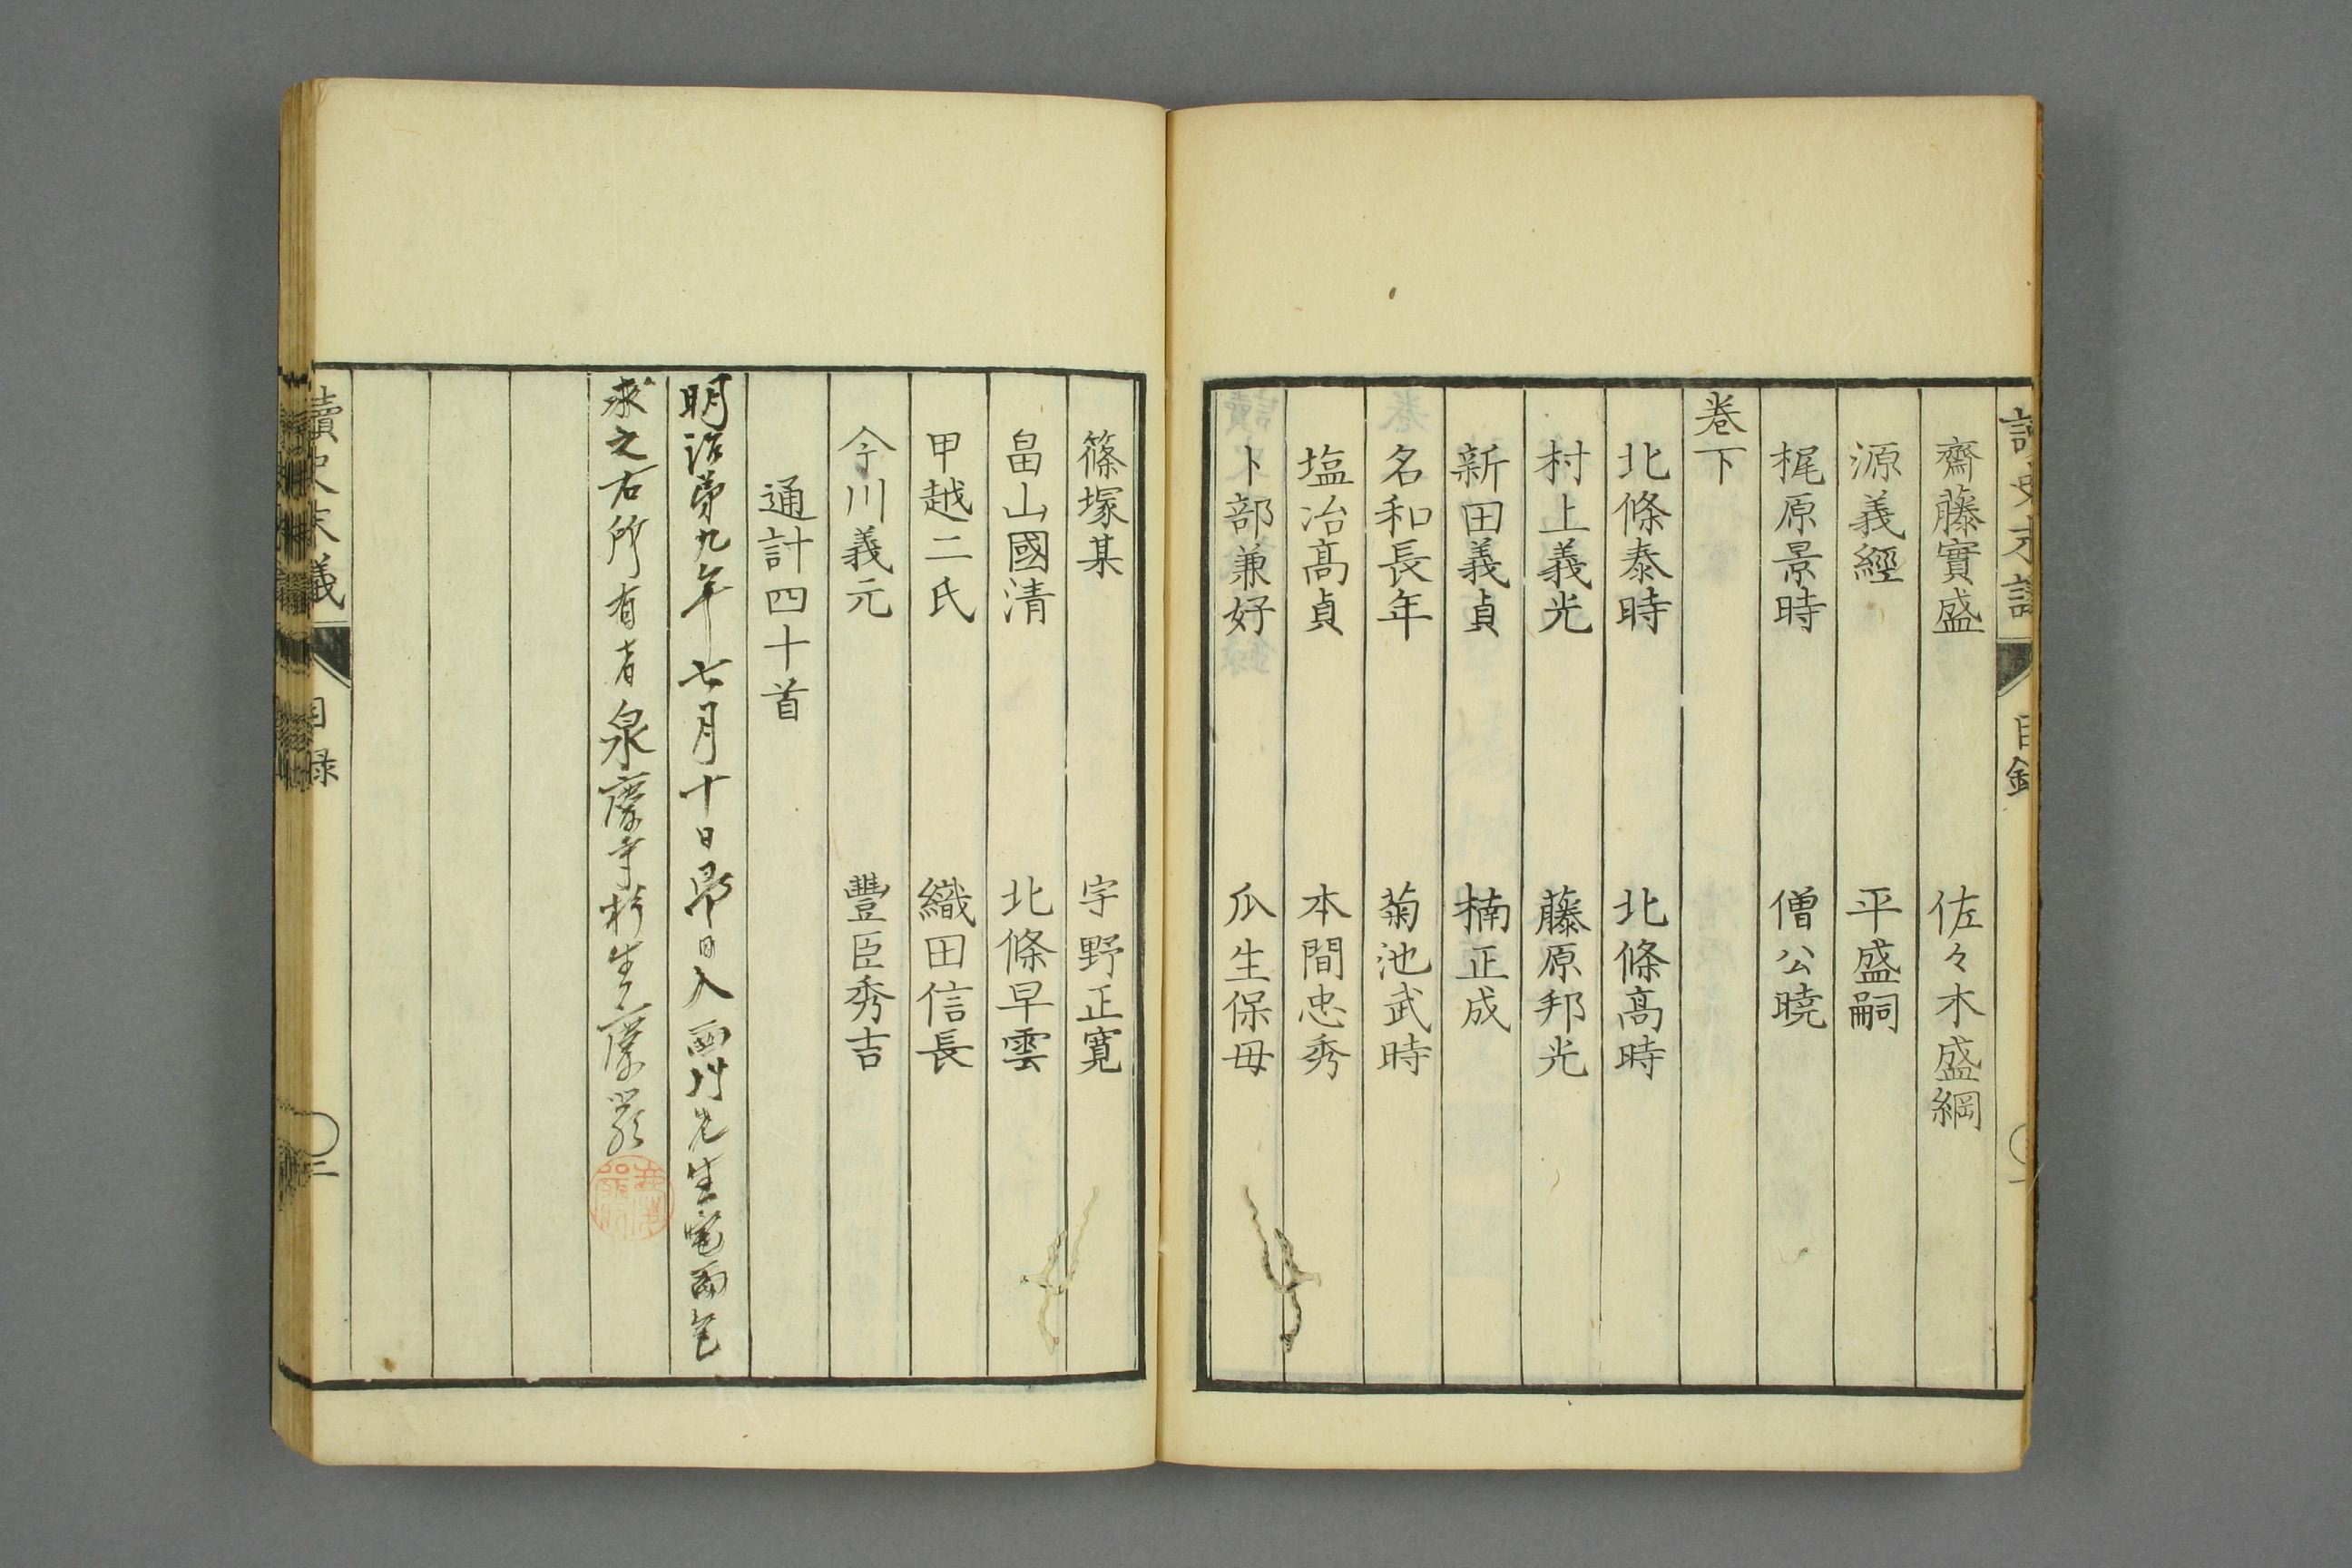 齋藤實盛 佐々木盛綱
源義經 平盛嗣
梶原景時 僧公曉
卷下
北條泰時 北條高時
村上義光 藤原邦光
新田義貞 楠正成
名和長年 菊池武時
塩冶高貞 本間忠秀
卜部兼好 瓜生保母
篠塚某 宇野正寬
畠山國清 北條早雲
甲越二氏 織田信長
今川義元 豐臣秀吉
通計四十首
明治第九年七月十日 日入 先生
求之右所有者泉
讀史末議
目録
二